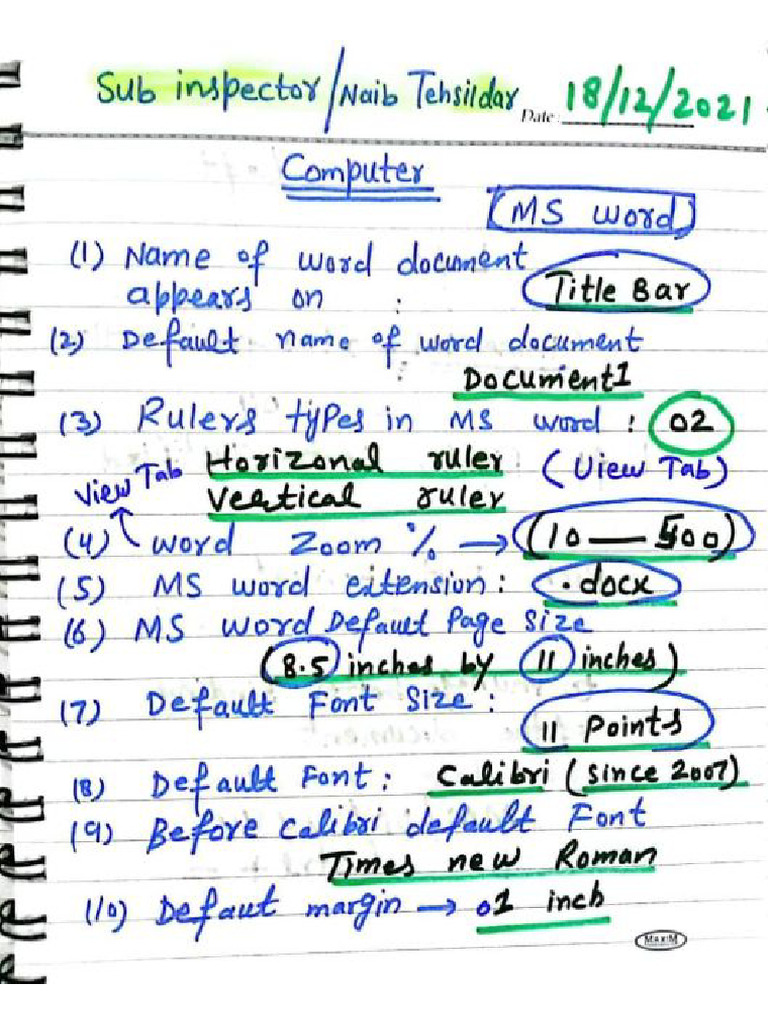 Sub inspector/Naib Tehsildar Date: 18/12/2021
Computer
MS word
(1) Name of word document
appears on : Title Bar
(2) Default name of word document
: Document1
(3) Rulers types in MS word : 02
View Tab Horizonal ruler (View Tab)
Vertical ruler
(4) word Zoom % → (10 — 500)
(5) MS word extension : .docx
(6) MS word Default Page Size
(8.5 inches by 11 inches)
(7) Default Font Size :
11 Points
(8) Default Font : Calibri (since 2007)
(9) Before Calibri default Font
Times new Roman
(10) Defaut margin → 01 inch
MaxM